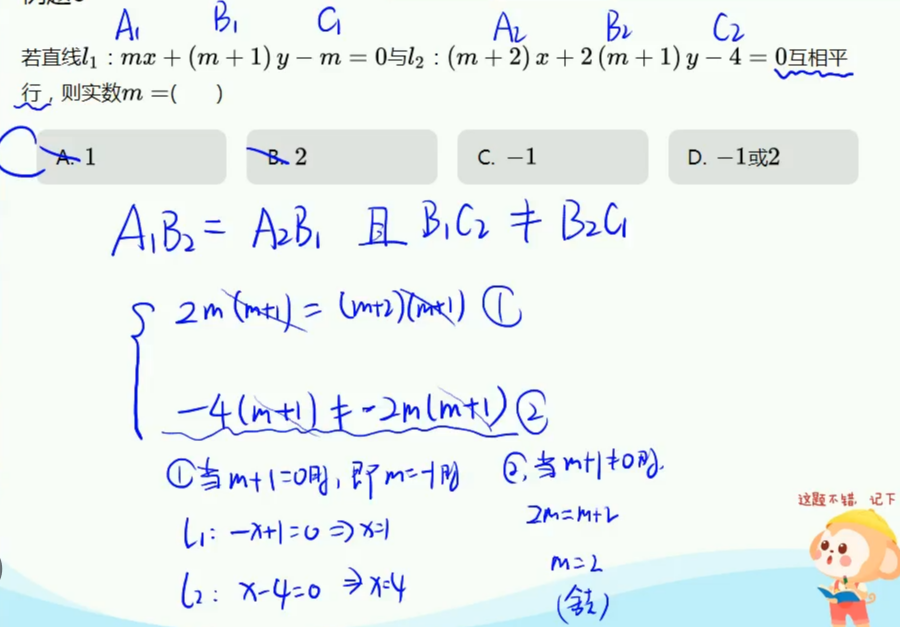 A₁ B₁ C₁ A₂ B₂ C₂
若直线l₁：mx+(m+1)y−m=0与l₂：(m+2)x+2(m+1)y−4=0互相平
行，则实数m=( )
A. 1 B. 2 C. −1 D. −1或2
A₁B₂=A₂B₁ 且 B₁C₂≠B₂C₁
2m(m+1)=(m+2)(m+1) ①
−4(m+1)≠−2m(m+1) ②
①当m+1=0时，即m=-1时 ②，当m+1≠0时.
l₁：−x+1=0⇒x=1 2m=m+2
l₂：x−4=0⇒x=4 m=2
(舍去)
这题不错，记下